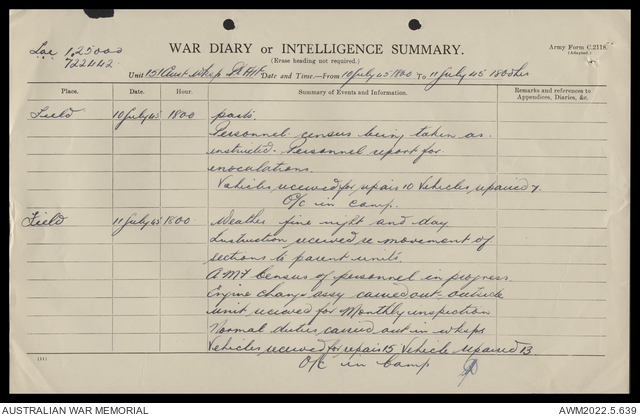 Lae 1,25000
"A"
722442
WAR DIARY or INTELLIGENCE SUMMARY.
(Erase heading not required.)
Army Form C.2118.
(Adapted.)
Unit 151 Aust Wksp Date and Time.—From 10 July 45 1800 To 11 July 45 1800 hrs
Place. Date. Hour. Summary of Events and Information. Remarks and references to Appendices, Diaries, &c.
Field 10 July 45 1800 parts.
Personnel census being taken as
instructed. Personnel report for
inoculations.
Vehicles received for repair 10 Vehicles repaired 7.
O/C in camp.
Field 11 July 45 1800 Weather fine night and day
Instruction received re movement of
sections to parent units.
AMF Census of personnel in progress.
Engine change assy carried out - outside
unit received for Monthly inspection
Normal duties carried out in wksps
Vehicles received for repair 15 Vehicle repaired 13.
O/C in Camp
AUSTRALIAN WAR MEMORIAL AWM2022.5.639